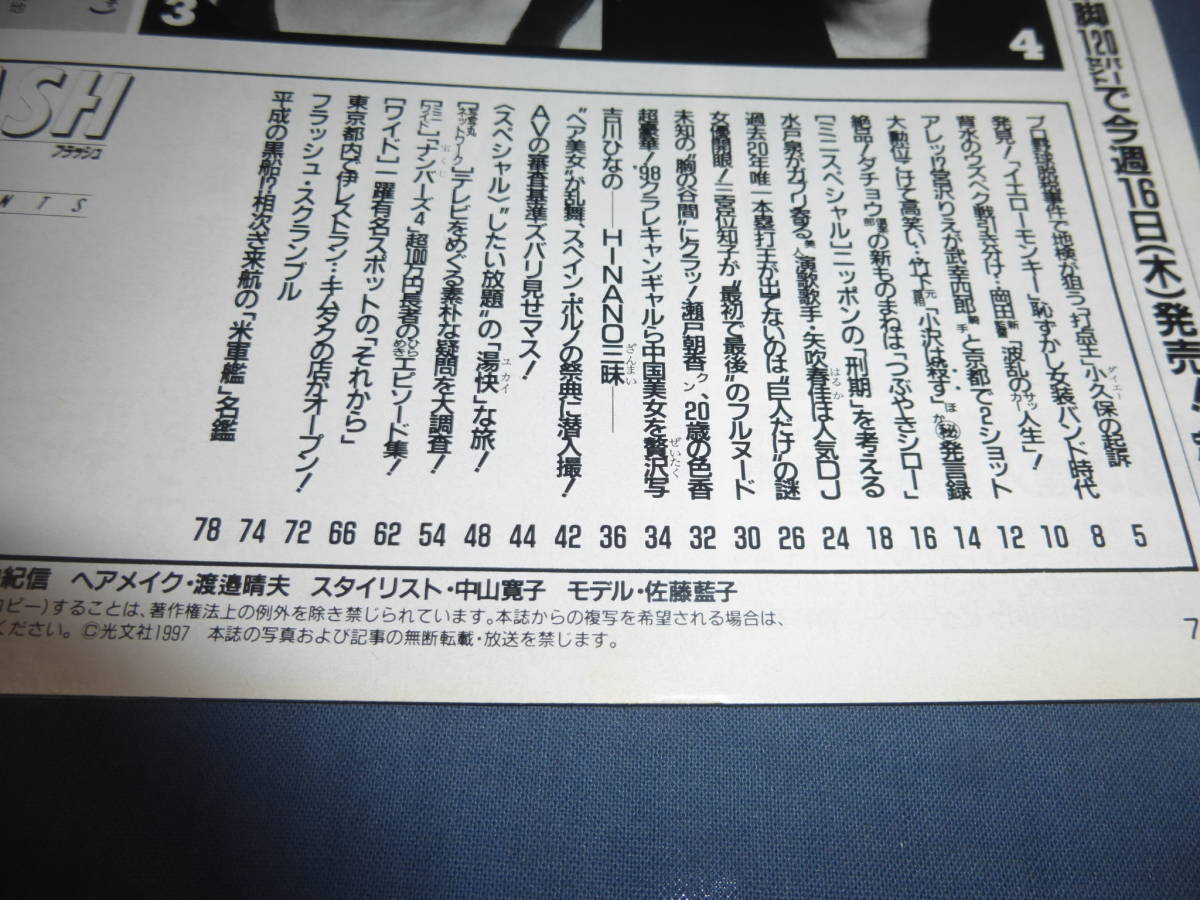 3
4
脚120パーセントで今週16日(木)発売!
ASH
フラッシュ
NTS
プロ野球脱税事件で地検が狙う“打点王”小久保の起訴 5
発見!「イエローモンキー」恥ずかし女装バンド時代 8
背水のウズベク戦引き分け…岡田新監督「波乱のサッカー人生」! 10
アレッ!?宮沢りえが武幸四郎騎手と京都で2ショット 12
大勲位こけて高笑い…竹下元首相「小沢は殺す」ほか㊙発言録 14
絶品!ダチョウ倶楽部の新ものまねは「つぶやきシロー」 16
[ミニスペシャル]ニッポンの「刑期」を考える 18
水戸泉がガブリ寄る美人演歌歌手・矢吹春佳は人気DJ 24
過去20年唯一本塁打王が出てないのは“巨人だけ”の謎 26
女優開眼!三宮位知子が“最初で最後”のフルヌード 30
未知の“胸の谷間”にクラッ!瀬戸朝香クン、20歳の色香 32
超豪華!'98クラレキャンギャルら中国美女を贅沢写 34
吉川ひなの――HINANO三昧―― 36
“ヘア美女”が乱舞、スペイン・ポルノの祭典に潜入撮! 42
AVの審査基準ズバリ見せマス! 44
〈スペシャル〉“したい放題”の「湯快」な旅! 48
テレビをめぐる素朴な疑問を大調査! 54
[ミニワイド]「ナンバーズ4」超100万円長者のひらめきエピソード集! 62
[ワイド]一躍有名スポットの「それから」 66
東京都内で伊レストラン…キムタクの店がオープン! 72
フラッシュ・スクランブル 74
平成の黒船!?相次ぎ来航の「米軍艦」名鑑 78
紀信 ヘアメイク・渡邉晴夫 スタイリスト・中山寛子 モデル・佐藤藍子
コピー)することは、著作権法上の例外を除き禁じられています。本誌からの複写を希望される場合は、
ください。©光文社1997 本誌の写真および記事の無断転載・放送を禁じます。
7